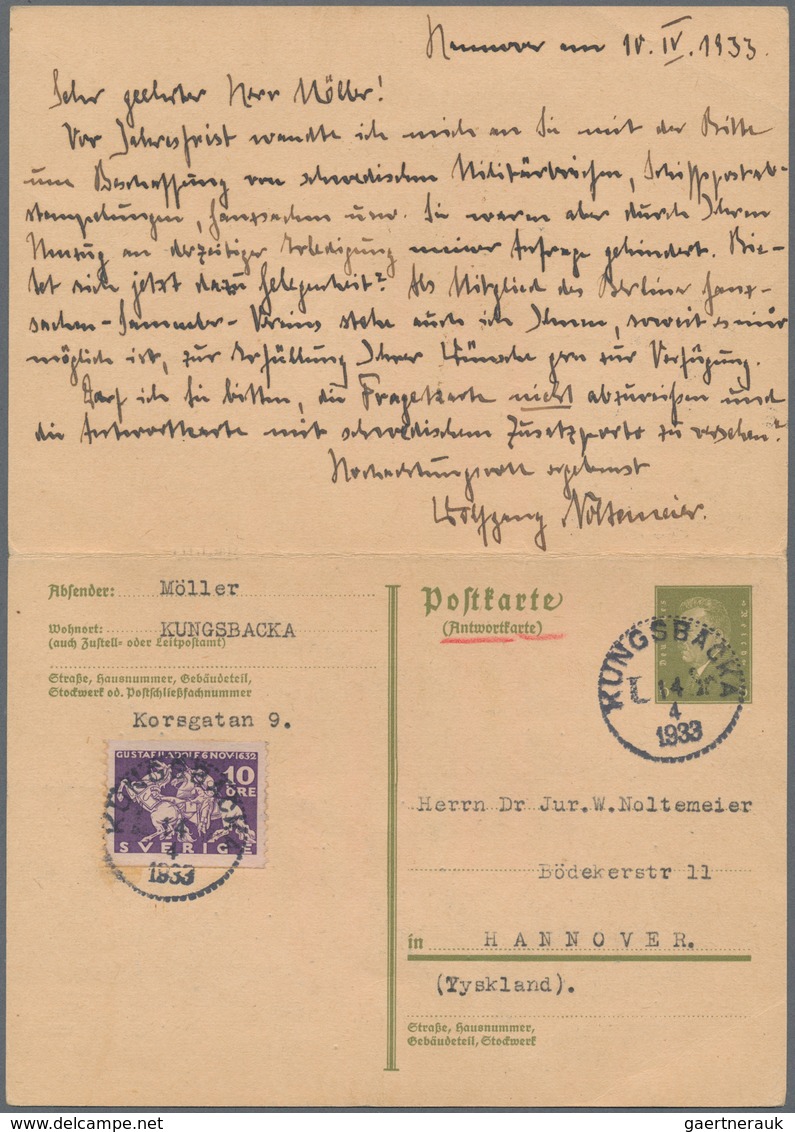 Hannover am 10. IV. 1933.
Sehr geehrter Herr Möller!
Vor Jahresfrist wandte ich mich an Sie mit der Bitte
um Beschaffung von schwedischen Militärbriefen, Schiffspostab-
stempelungen, Ganzsachen usw. Sie waren aber durch Ihren
Umzug an derzeitiger Erledigung meiner Anfrage gehindert. Bie-
tet sich jetzt dazu Gelegenheit? Als Mitglied des Berliner Ganz-
sachen-Sammler-Vereins stehe auch ich Ihnen, soweit es mir
möglich ist, zur Erfüllung Ihrer Wünsche gern zur Verfügung.
Darf ich Sie bitten, die Fragekarte nicht abzureißen und
die Antwortkarte mit schwedischem Zusatzporto zu versehen?
Hochachtungsvoll ergebenst
Wolfgang Noltemeier.
Absender: Möller
Wohnort: KUNGSBACKA
(auch Zustell- oder Leitpostamt)
Straße, Hausnummer, Gebäudeteil,
Stockwerk od. Postschließfachnummer
Korsgatan 9.
GUSTAF II ADOLF 6 NOV 1632
10 ÖRE
SVERIGE
KUNGSBACKA
14
4
1933
Postkarte
(Antwortkarte)
KUNGSBACKA
14
4
1933
Herrn Dr Jur.W.Noltemeier
Bödekerstr 11
in HANNOVER.
(Tyskland).
Straße, Hausnummer,
Gebäudeteil, Stockwerk
gaertnerauk
delcampe.net